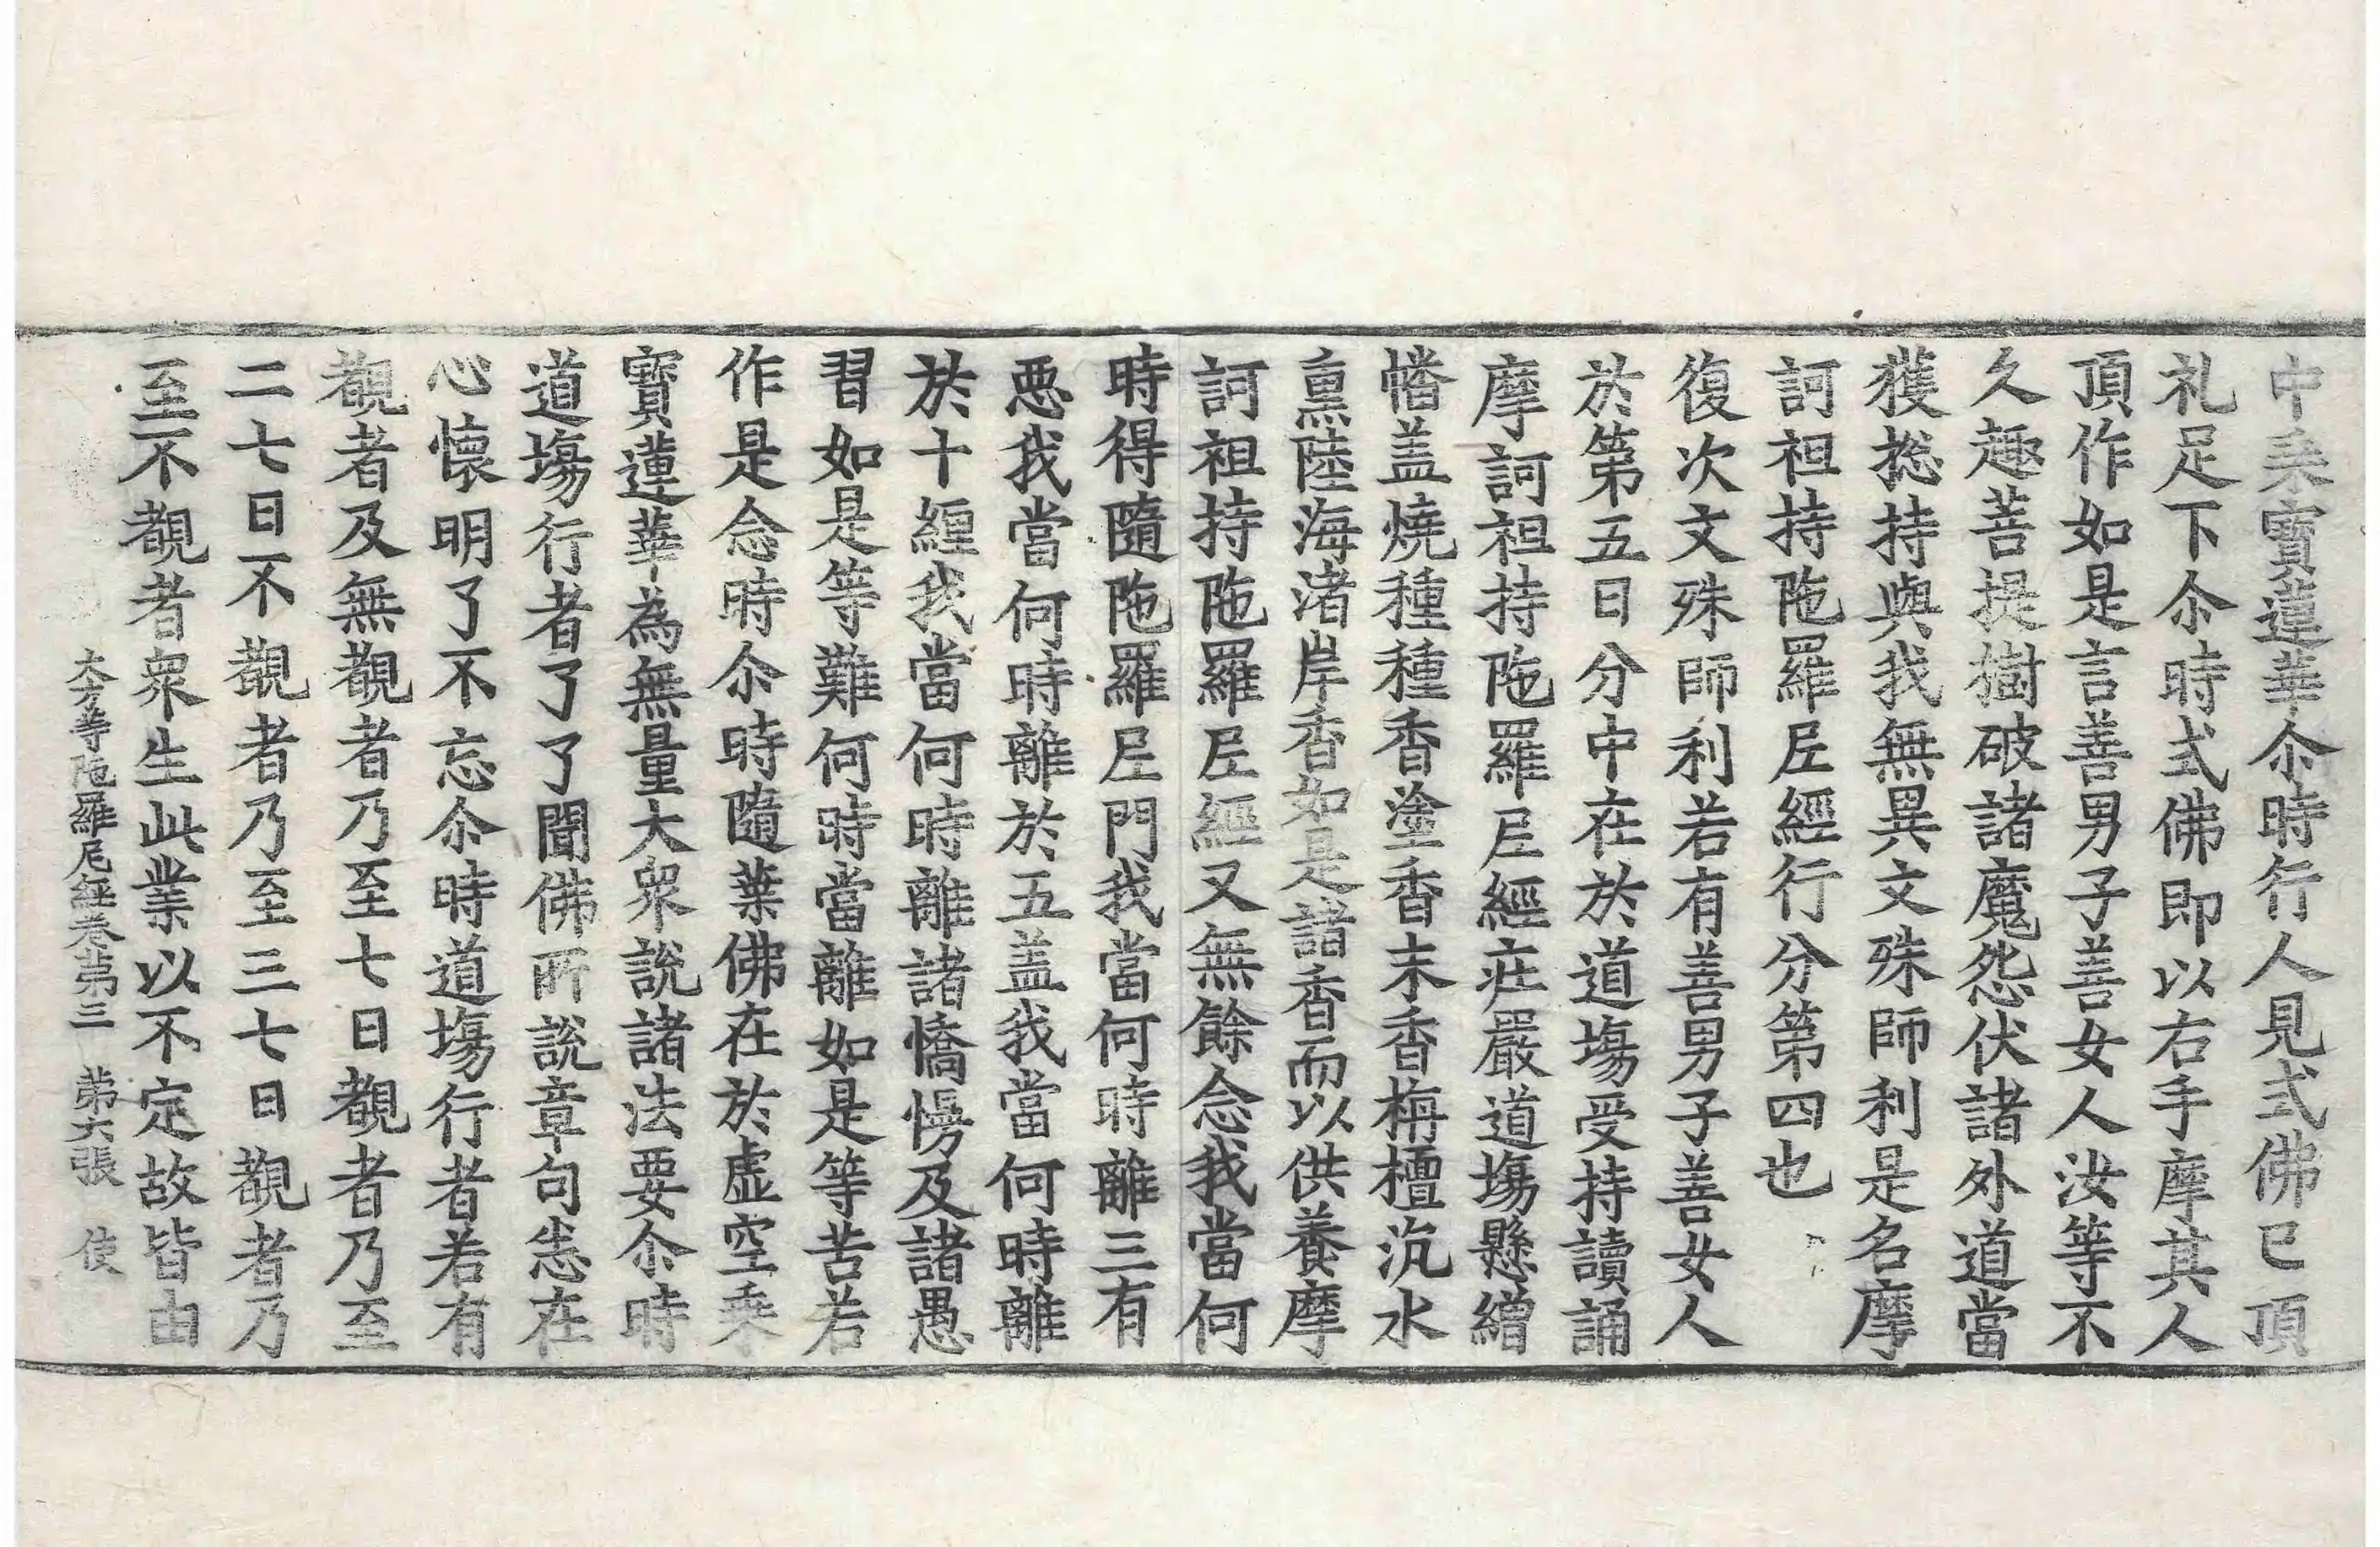 中乗寶蓮華尒時行人見式佛已頂
礼足下尒時式佛即以右手摩其人
頂作如是言善男子善女人汝等不
久趣菩提樹破諸魔怨伏諸外道當
獲揔持與我無異文殊師利是名摩
訶袒持陁羅𡰱經行分第四也
復次文殊師利若有善男子善女人
於第五日分中在於道塲受持讀誦
摩訶袒持陁羅𡰱經莊嚴道塲懸繒
幡盖燒種種香塗香末香栴檀沉水
熏陸海渚岸香如是諸香而以供養摩
訶袒持陁羅𡰱經又無餘念我當何
時得隨陁羅𡰱門我當何時離三有
惡我當何時離於五盖我當何時離
於十纏我當何時離諸憍慢及諸愚
習如是等難何時當離如是等苦若
作是念時尒時隨葉佛在於虛空乗
寶蓮華為無量大衆說諸法要尒時
道塲行者了了聞佛所說章句悉在
心懷明了不忘尒時道塲行者若有
覩者及無覩者乃至七日覩者乃至
二七日不覩者乃至三七日覩者乃
至不覩者衆生此業以不定故皆由
大方等陁羅尼經卷第三　第六張　使